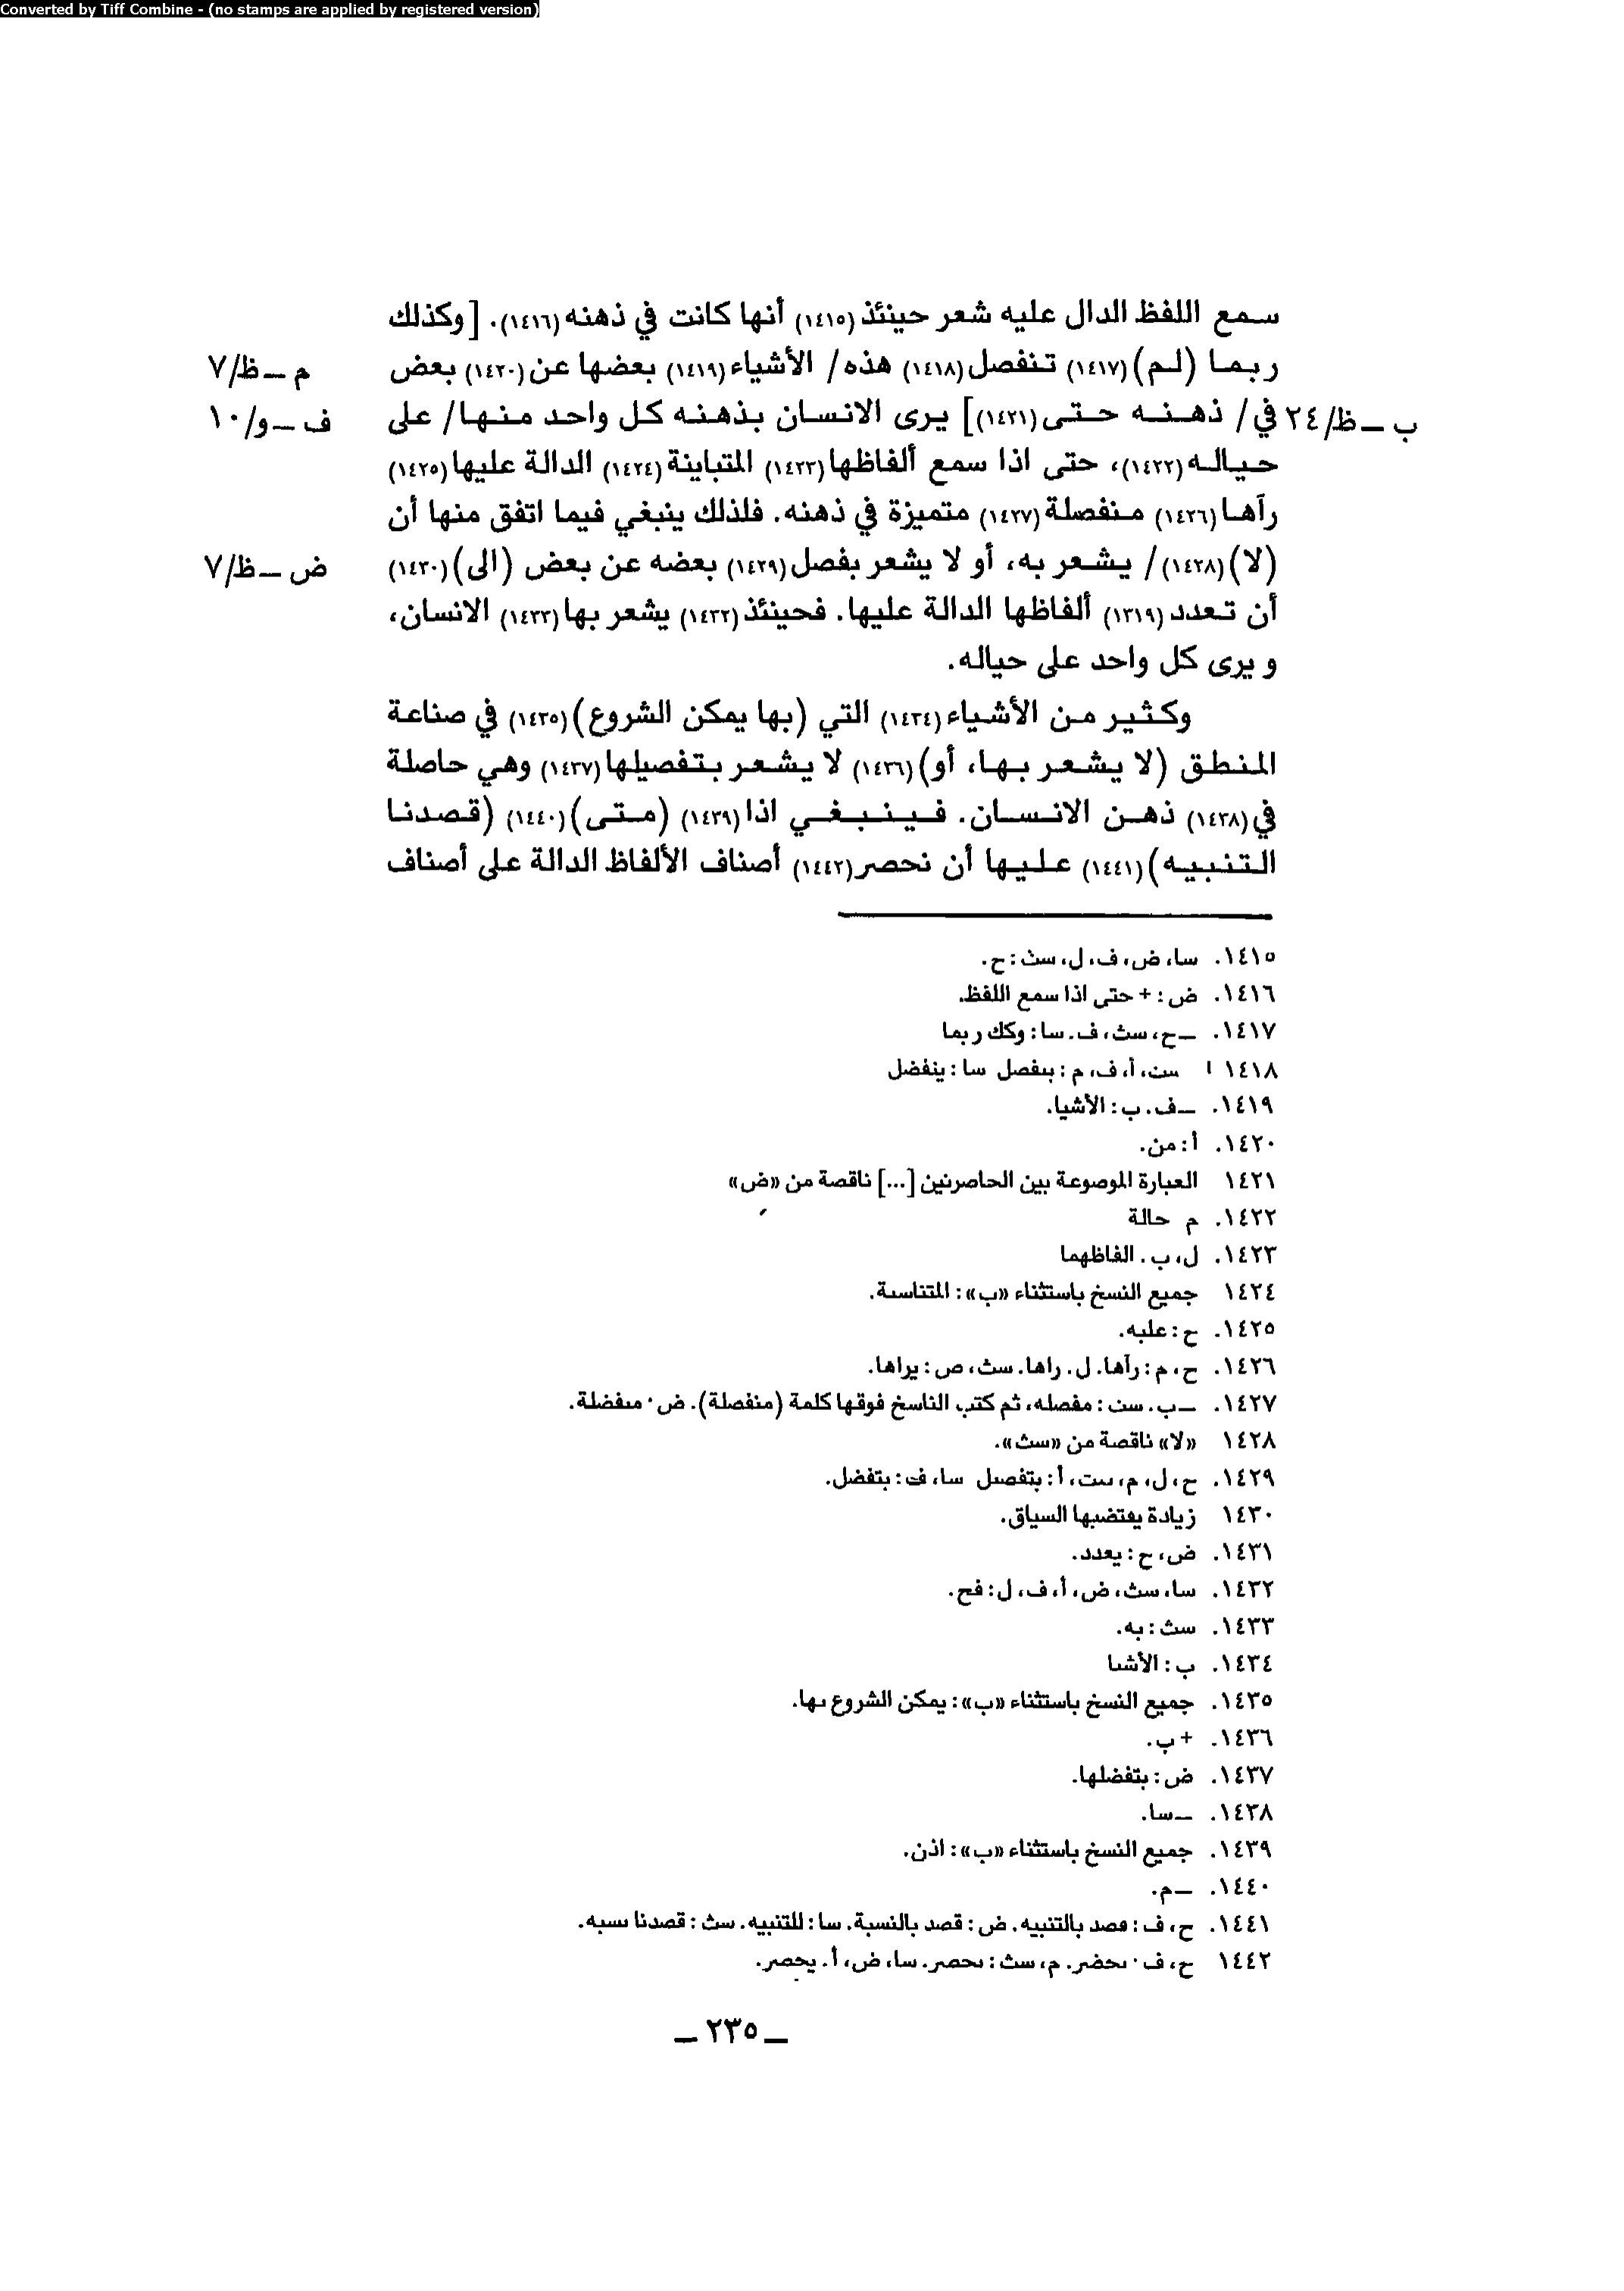 Converted by Tiff Combine - (no stamps are applied by registered version)
سمع اللفظ الدال عليه شعر حينئذ (١٤١٥) أنها كانت في ذهنه (١٤١٦). [وكذلك
ربما (لم) (١٤١٧) تنفصل (١٤١٨) هذه/ الأشياء (١٤١٩) بعضها عن (١٤٢٠) بعض
م ــ ظ/٧
ب ــ ظ/٢٤
في/ ذهنه حتى (١٤٢١)] يرى الانسان بذهنه كل واحد منها/ على
ف ــ و/١٠
حياله (١٤٢٢)، حتى اذا سمع ألفاظها (١٤٢٣) المتباينة (١٤٢٤) الدالة عليها (١٤٢٥)
رآها (١٤٢٦) منفصلة (١٤٢٧) متميزة في ذهنه. فلذلك ينبغي فيما اتفق منها أن
(لا) (١٤٢٨)/ يشعر به، أو لا يشعر بفصل (١٤٢٩) بعضه عن بعض (الى) (١٤٣٠)
ض ــ ظ/٧
أن تعدد (١٣١٩) ألفاظها الدالة عليها. فحينئذ (١٤٣٢) يشعر بها (١٤٣٣) الانسان،
ويرى كل واحد على حياله.
وكثير من الأشياء (١٤٣٤) التي (بها يمكن الشروع) (١٤٣٥) في صناعة
المنطق (لا يشعر بها، أو) (١٤٣٦) لا يشعر بتفصيلها (١٤٣٧) وهي حاصلة
في (١٤٣٨) ذهن الانسان. فينبغي اذا (١٤٣٩) (متى) (١٤٤٠) (قصدنا
التنبيه) (١٤٤١) عليها أن نحصر (١٤٤٢) أصناف الألفاظ الدالة على أصناف
١٤١٥. سا، ض، ف، ل، سث: ح.
١٤١٦. ض: + حتى اذا سمع اللفظ.
١٤١٧. ــ ح، سث، ف. سا: وكك ربما
١٤١٨ ست، أ، ف، م: ينفصل سا: ينفضل
١٤١٩. ــ ف. ب: الأشيا.
١٤٢٠. أ: من.
١٤٢١ العبارة الموصوعة بين الحاصرنين [...] ناقصة من «ض»
١٤٢٢. م حالة
١٤٢٣. ل، ب. الفاظهما
١٤٢٤ جميع النسخ باستثناء «ب»: المتناسبة.
١٤٢٥. ح: عليه.
١٤٢٦. ح، م: رآها. ل. راها. سث، ص: يراها.
١٤٢٧. ــ ب. ست: مفصله، ثم كتب الناسخ فوقها كلمة (منفصلة). ض. منفضلة.
١٤٢٨ «لا» ناقصة من «سث».
١٤٢٩. ح، ل، م، ست، أ: بتفصيل سا، ف: بتفضل.
١٤٣٠ زيادة يقتضيها السياق.
١٤٣١. ض، ح: يعدد.
١٤٣٢. سا، سث، ض، أ، ف، ل: فح.
١٤٣٣. سث: به.
١٤٣٤. ب: الأشيا
١٤٣٥. جميع النسخ باستثناء «ب»: يمكن الشروع بها.
١٤٣٦. + ب.
١٤٣٧. ض: بتفضلها.
١٤٣٨. ــ سا.
١٤٣٩. جميع النسخ باستثناء «ب»: اذن.
١٤٤٠. ــ م.
١٤٤١. ح، ف: قصد بالتنبيه. ض: قصد بالنسبة. سا: للتنبيه. سث: قصدنا بسبه.
١٤٤٢ ح، ف. يحضر. م، سث: يحصر. سا، ض، أ. يحصر.
ــ ٢٣٥ ــ